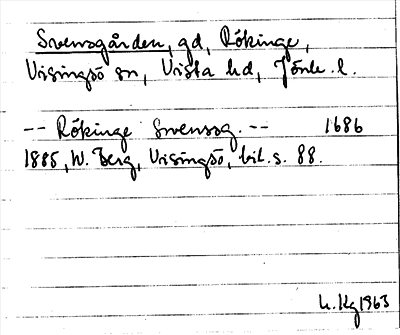 Svensgården, gd, Rökinge,
Visingsö sn, Vista hd, Jönk. l.
-- Rökinge Svensg. -- 1686
1885, W. Berg, Visingsö, bil. s. 88.
L. Hg 1963